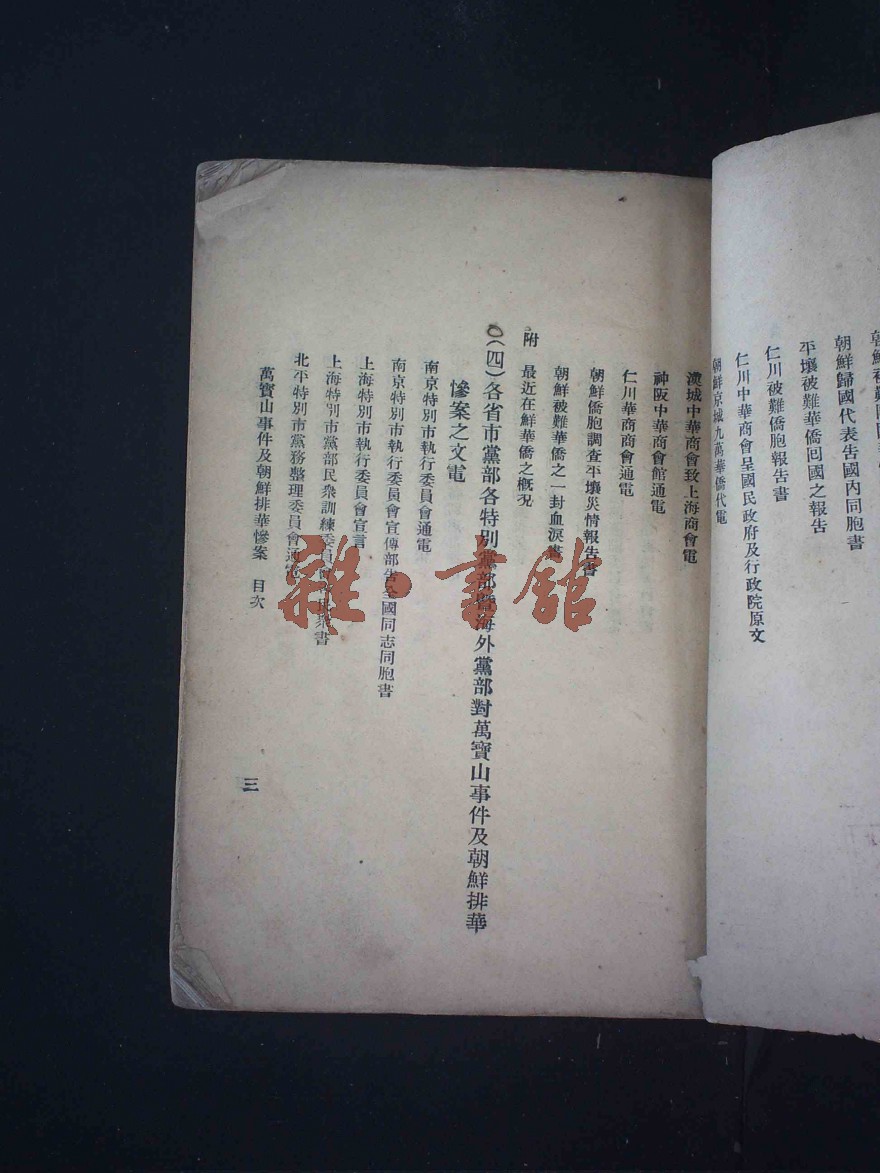 朝鮮歸國代表告國內同胞書
平壤被難華僑回國之報告
仁川被難僑胞報告書
仁川中華商會呈國民政府及行政院原文
朝鮮京城九萬華僑代電
漢城中華商會致上海商會電
神阪中華商會館通電
仁川華商商會通電
朝鮮僑胞調查平壤災情報告書
朝鮮被難華僑之一封血淚書
附 最近在鮮華僑之概況
(四)各省市黨部各特別黨部暨海外黨部對萬寶山事件及朝鮮排華
慘案之文電
南京特別市執行委員會通電
南京特別市執行委員會宣傳部告全國同志同胞書
上海特別市執行委員會宣言
上海特別市黨部民衆訓練委員會民衆書
北平特別市黨務整理委員會通電
萬寶山事件及朝鮮排華慘案 目次
三
雜·書館